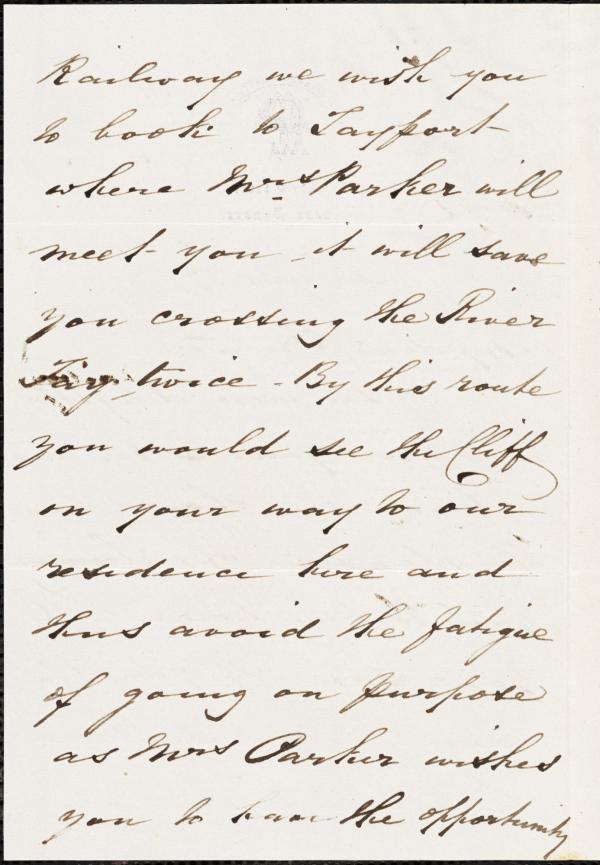 Railway we wish you
to book to Tayport
where Mrs Parker will
meet you - it will save
you crossing the River
Tay twice - By this route
you would see the Cliff
on your way to our
residence here and
thus avoid the fatigue
of going on purpose
as Mrs Parker wishes
you to have the opportunity